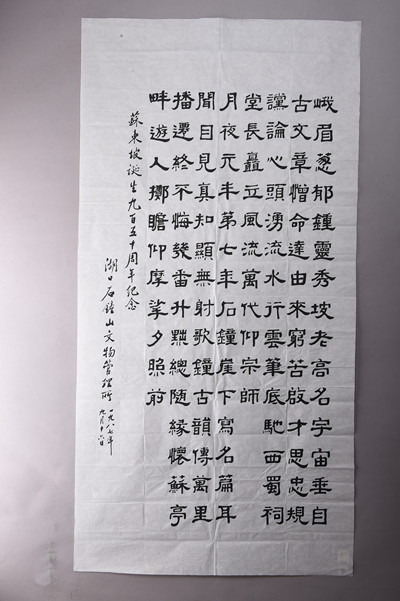 峨眉葱郁鍾靈秀坡老高名宇宙垂自
古文章憎命達由來窮苦啟才思忠規
讜論心頭湧流水行雲筆底馳西蜀祠
堂長矗立風流萬代仰宗師
月夜元丰第七年石鐘崖下寫名篇耳
聞目見真知顯無射歌鐘古韻傳萬里
播遷終不悔幾番升黜總隨緣懷蘇亭
畔遊人擲瞻仰摩挲夕照前
蘇東坡誕生九百五十周年紀念
湖口石鐘山文物管理所
一九八七年
九月十日